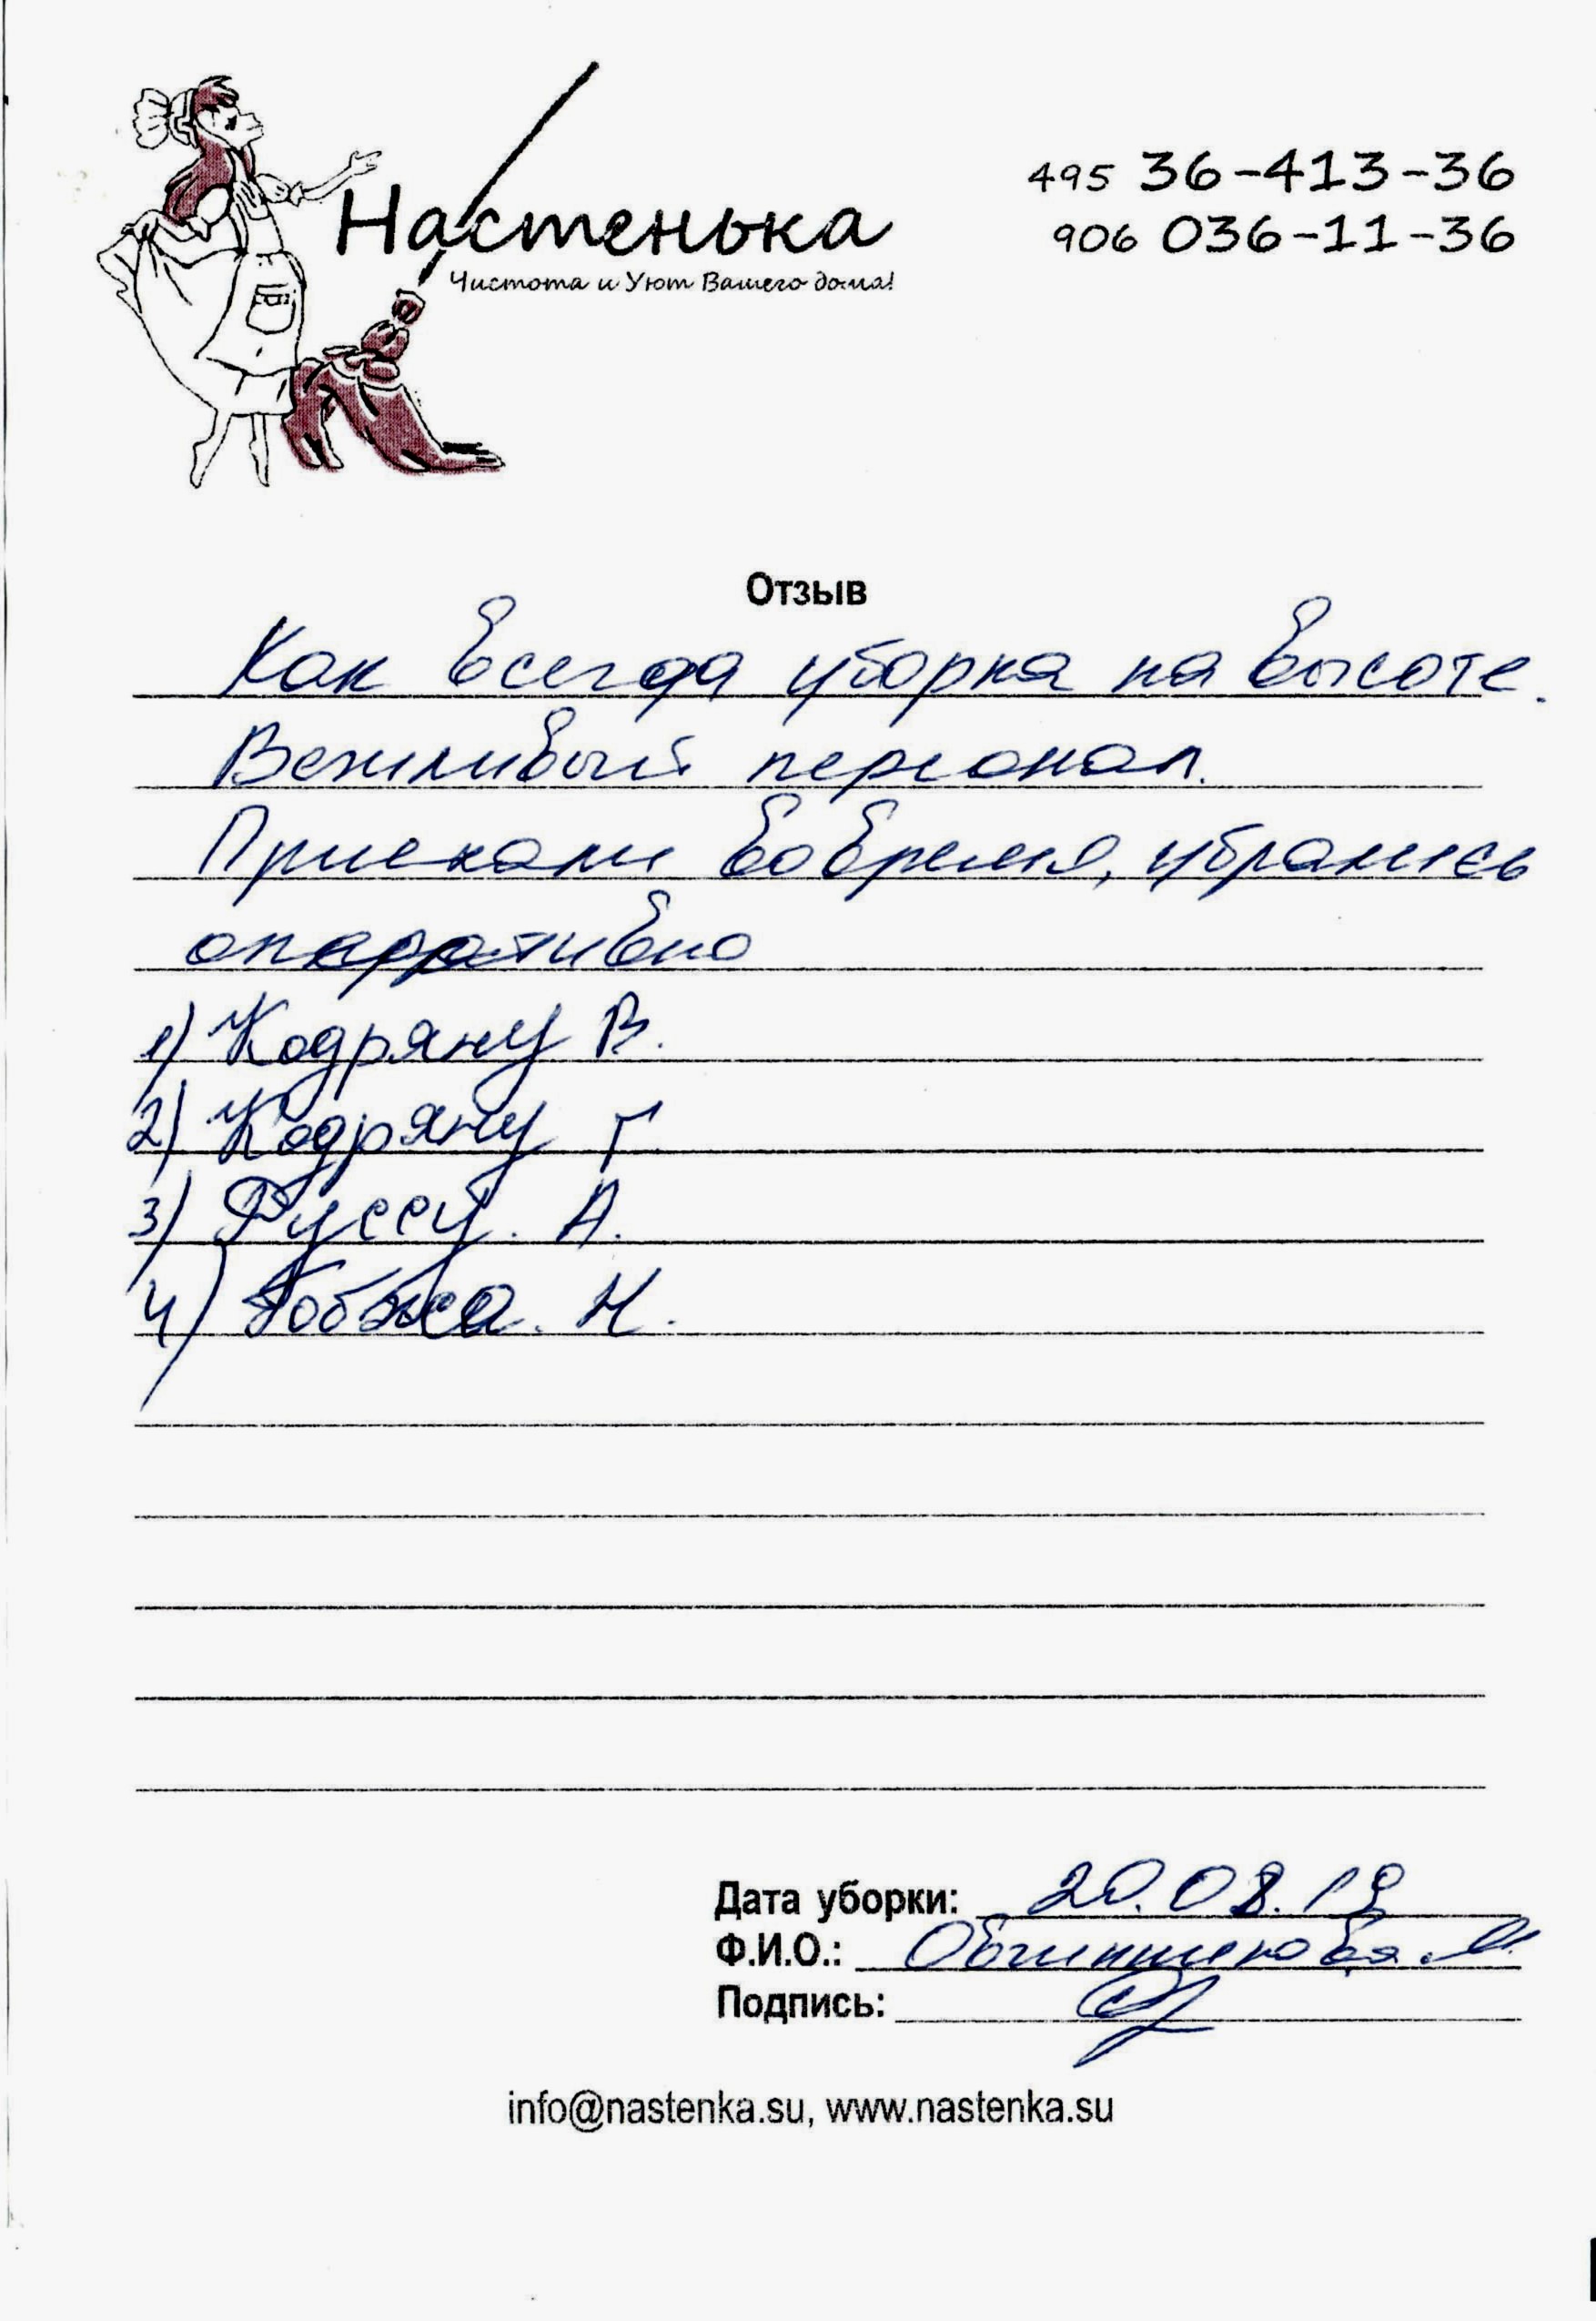 Настенька
Чистота и Уют Вашего дома!
495 36-413-36
906 036-11-36
Отзыв
Как всегда уборка на высоте.
Вежливый персонал.
Приехали вовремя, убрались
оперативно
1) Кодряну В.
2) Кодряну Г
3) Руссу. А.
4) Н.
Дата уборки: 20.08.19
Ф.И.О.:
Подпись:
info@nastenka.su, www.nastenka.su